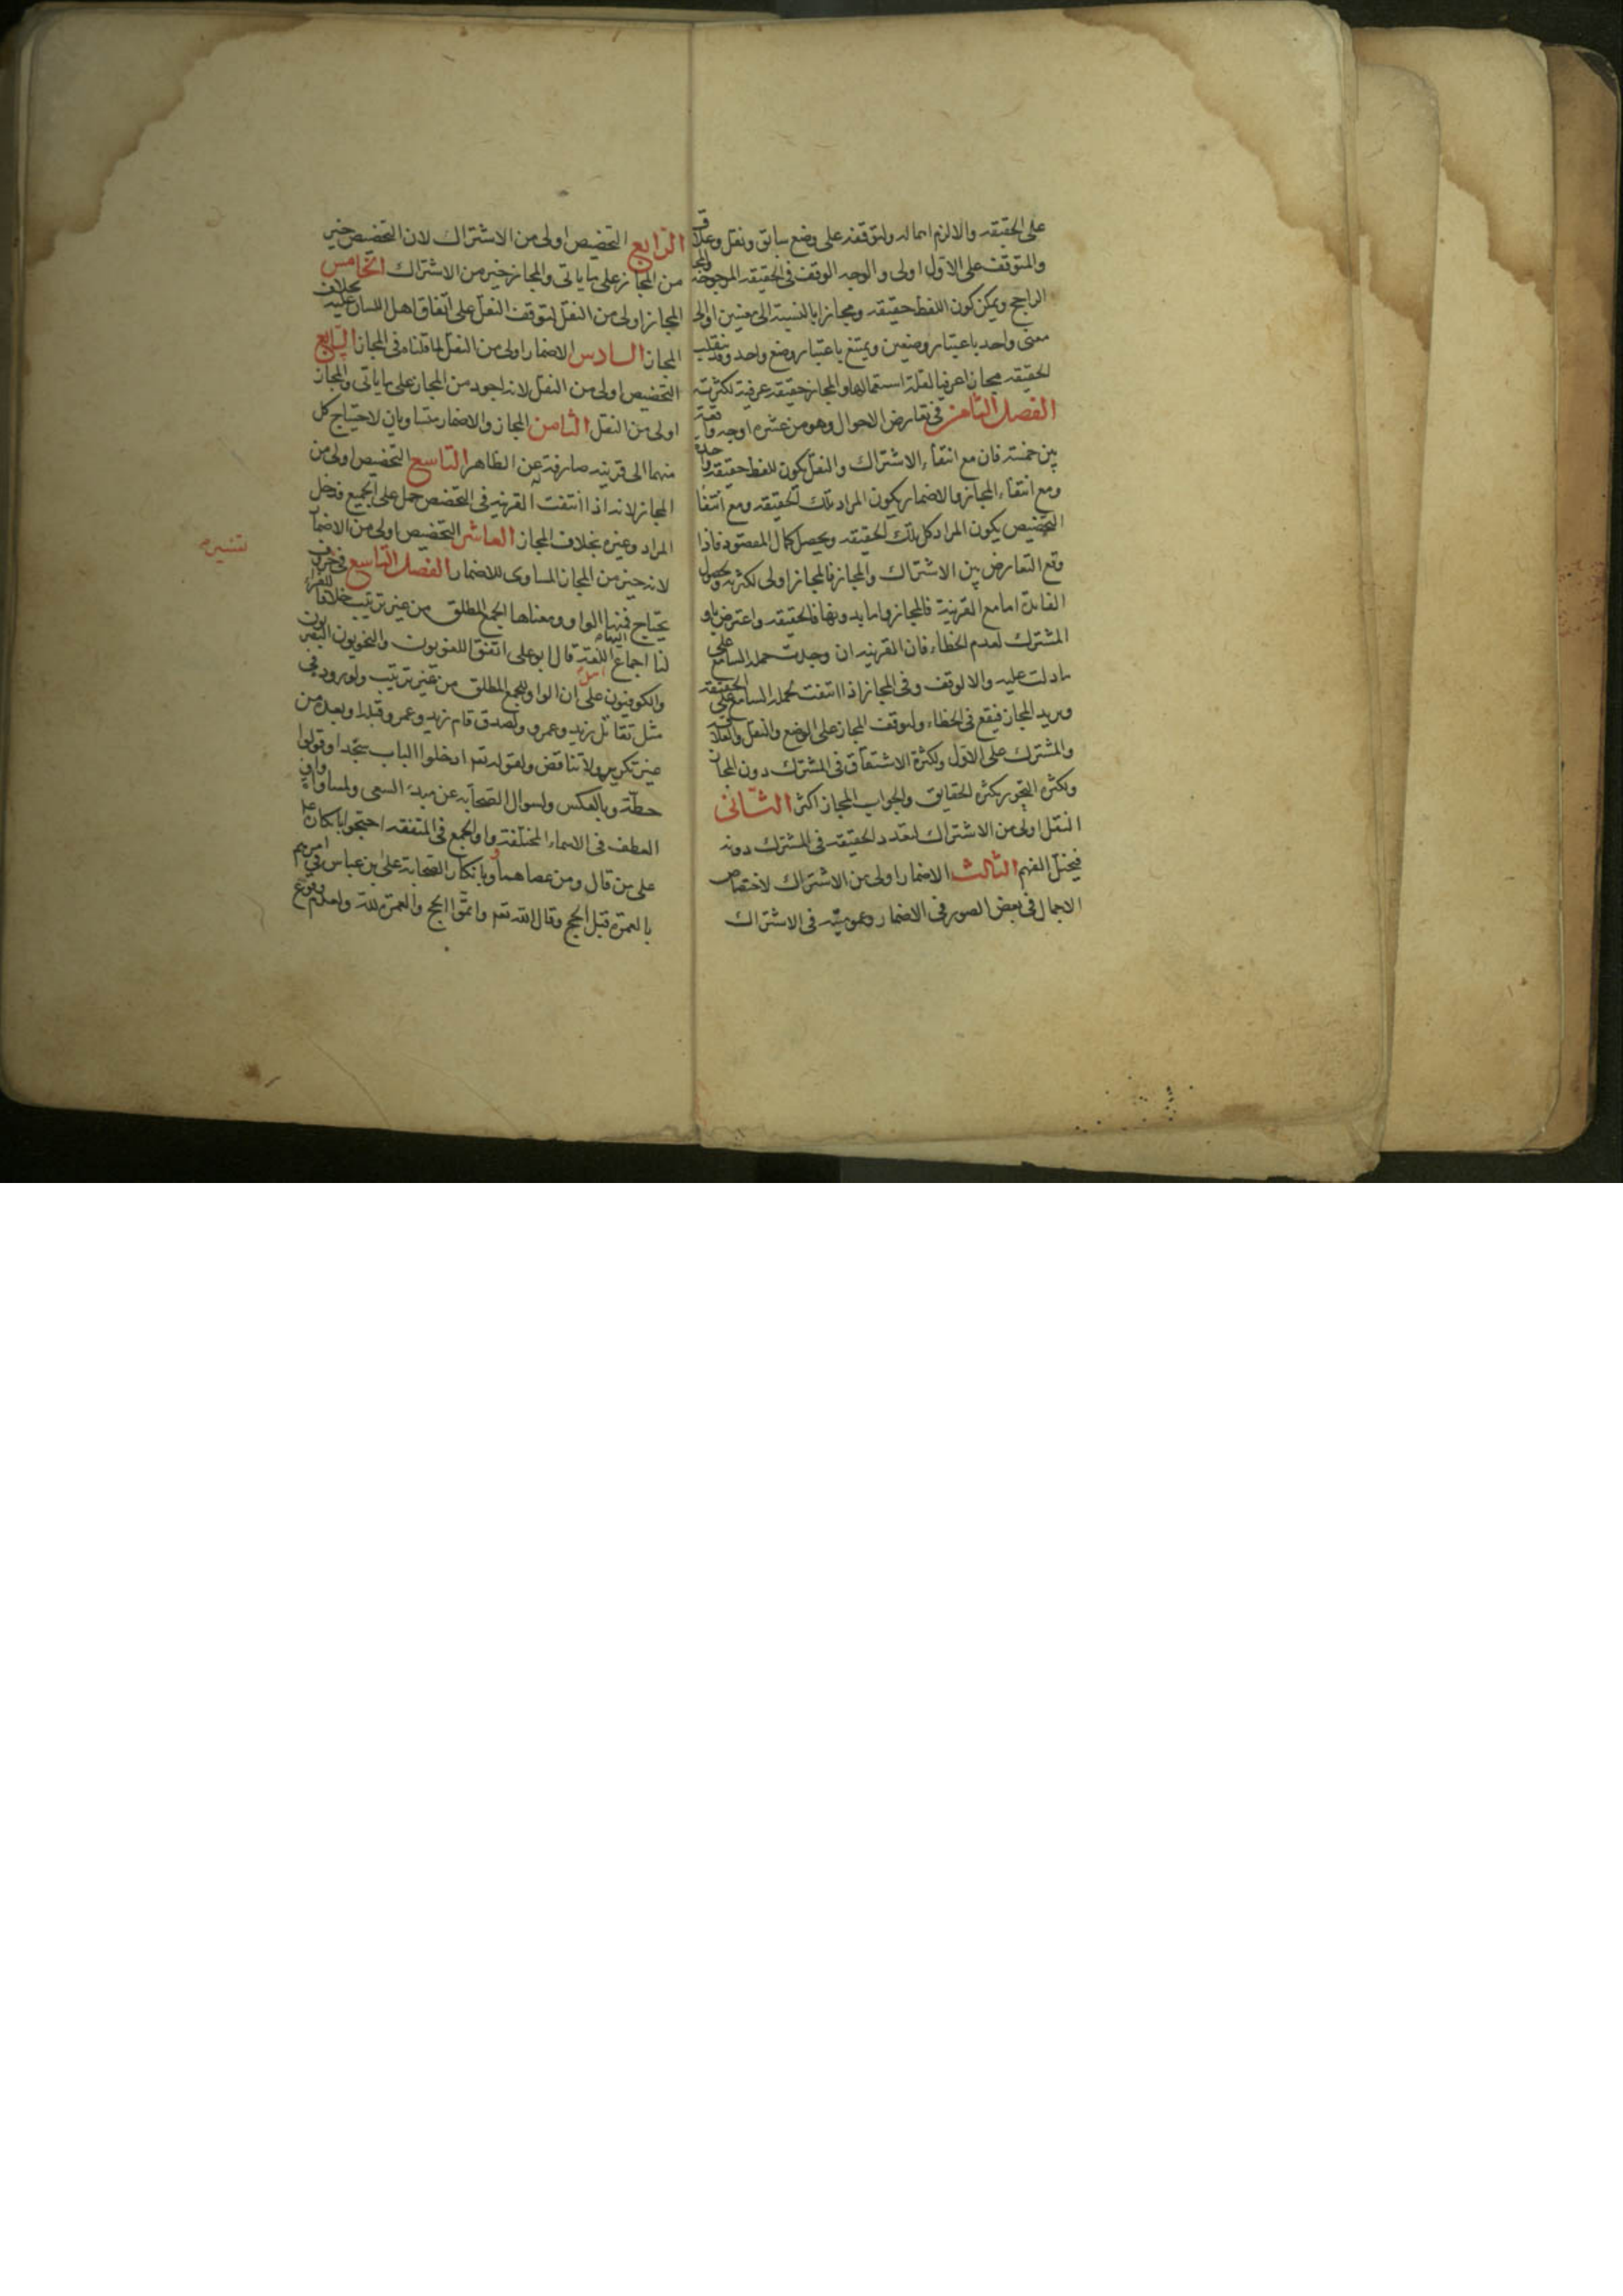 على الحقيقه والا لزم اهماله ولتوقفه على وضع سابق ونقل وعلاقة
والمتوقف على الاول اولى والوجه الوقف فى الحقيقه المرجوحة والمجاز
الراجح ويمكن كون اللفظ حقيقه ومجازا بالنسبة الى معنيين او الى
معنى واحد باعتبار وضعين ويمتنع باعتبار وضع واحد وقد تنقلب
الحقيقه مجازا عرفيا لقلة استعمالها والمجاز حقيقه عرفية لكثرته
الفصل الثامن فى تعارض الاحوال وهو من عشره اوجه واقعة
بين خمسة فان مع انتفاء الاشتراك والنقل يكون للفظ حقيقه واحدة
ومع انتفاء المجاز والاضمار يكون المراد تلك الحقيقه ومع انتفا
التخصيص يكون المراد كل تلك الحقيقه ويحصل كمال المقصود فاذا
وقع التعارض بين الاشتراك والمجاز فالمجاز اولى لكثرته وحصول
الفايدة اما مع القرينة فالمجاز واما بدونها فالحقيقه واعترض باو
المشترك لعدم الخطاء فان القرينه ان وجدت حمله السامع على
ما دلت عليه والا لوقف وفى المجاز اذا انتفت يحمله السامع على الحقيقه
ويريد المجاز فيقع فى الخطاء ولتوقف المجاز على الوضع والنقل والعلاقة
والمشترك على الاول ولكثرة الاشتقاق فى المشترك دون المجاز
ولكثره التجوز بكثره الحقايق والجواب المجاز اكثر الثانى
النقل اولى من الاشتراك لتعدد الحقيقه فى المشترك دونه
فيختل الفهم الثالث الاضمار اولى من الاشتراك لاختصاص
الاجمال فى بعض الصور فى الاضمار وعموميته فى الاشتراك
الرابع التخصيص اولى من الاشتراك لان التخصيص خير
من المجاز على ما ياتى والمجاز خير من الاشتراك الخامس
المجاز اولى من النقل لتوقف النقل على اتفاق اهل اللسان عليه بخلاف
المجاز السادس الاضمار اولى من النقل لما قلناه فى المجاز السابع
التخصيص اولى من النقل لانه اجود من المجاز على ما ياتى والمجاز
اولى من النقل الثامن المجاز والاضمار متساويان لاحتياج كل
منهما الى قرينه صارفة عن الظاهر التاسع التخصيص اولى من
المجاز لانه اذا انتفت القرينه فى التخصص حمل على الجميع فدخل
المراد وغيره بخلاف المجاز العاشر التخصيص اولى من الاضمار
لانه خير من المجاز المساوى للاضمار الفصل التاسع فى حروف
يحتاج فيها الواو ومعناها الجمع المطلق من غير ترتيب خلافا للفراء
لنا اجماع اللغة قال ابو على اتفق اللغويون والنحويون البصريون
والكوفيون على ان الواو للجمع المطلق من غير ترتيب ولورود فى
مثل تقاتل زيد وعمرو ولصدق قام زيد وعمرو قبله او بعده من
غير تكرير ولا تناقض ولقوله تع ادخلوا الباب سجدا وقولوا
حطة وبالعكس ولسوال الصحابه عن مبدء السعى ولمساواة واو
العطف فى الاسماء المختلفة واو الجمع فى المتفقه احتجوا بانكاره ع
على من قال ومن عصاهما وبانكار الصحابة على ابن عباس فى امرهم
بالعمره قبل الحج وقال الله تع واتموا الحج والعمره لله ولعدم وقوع